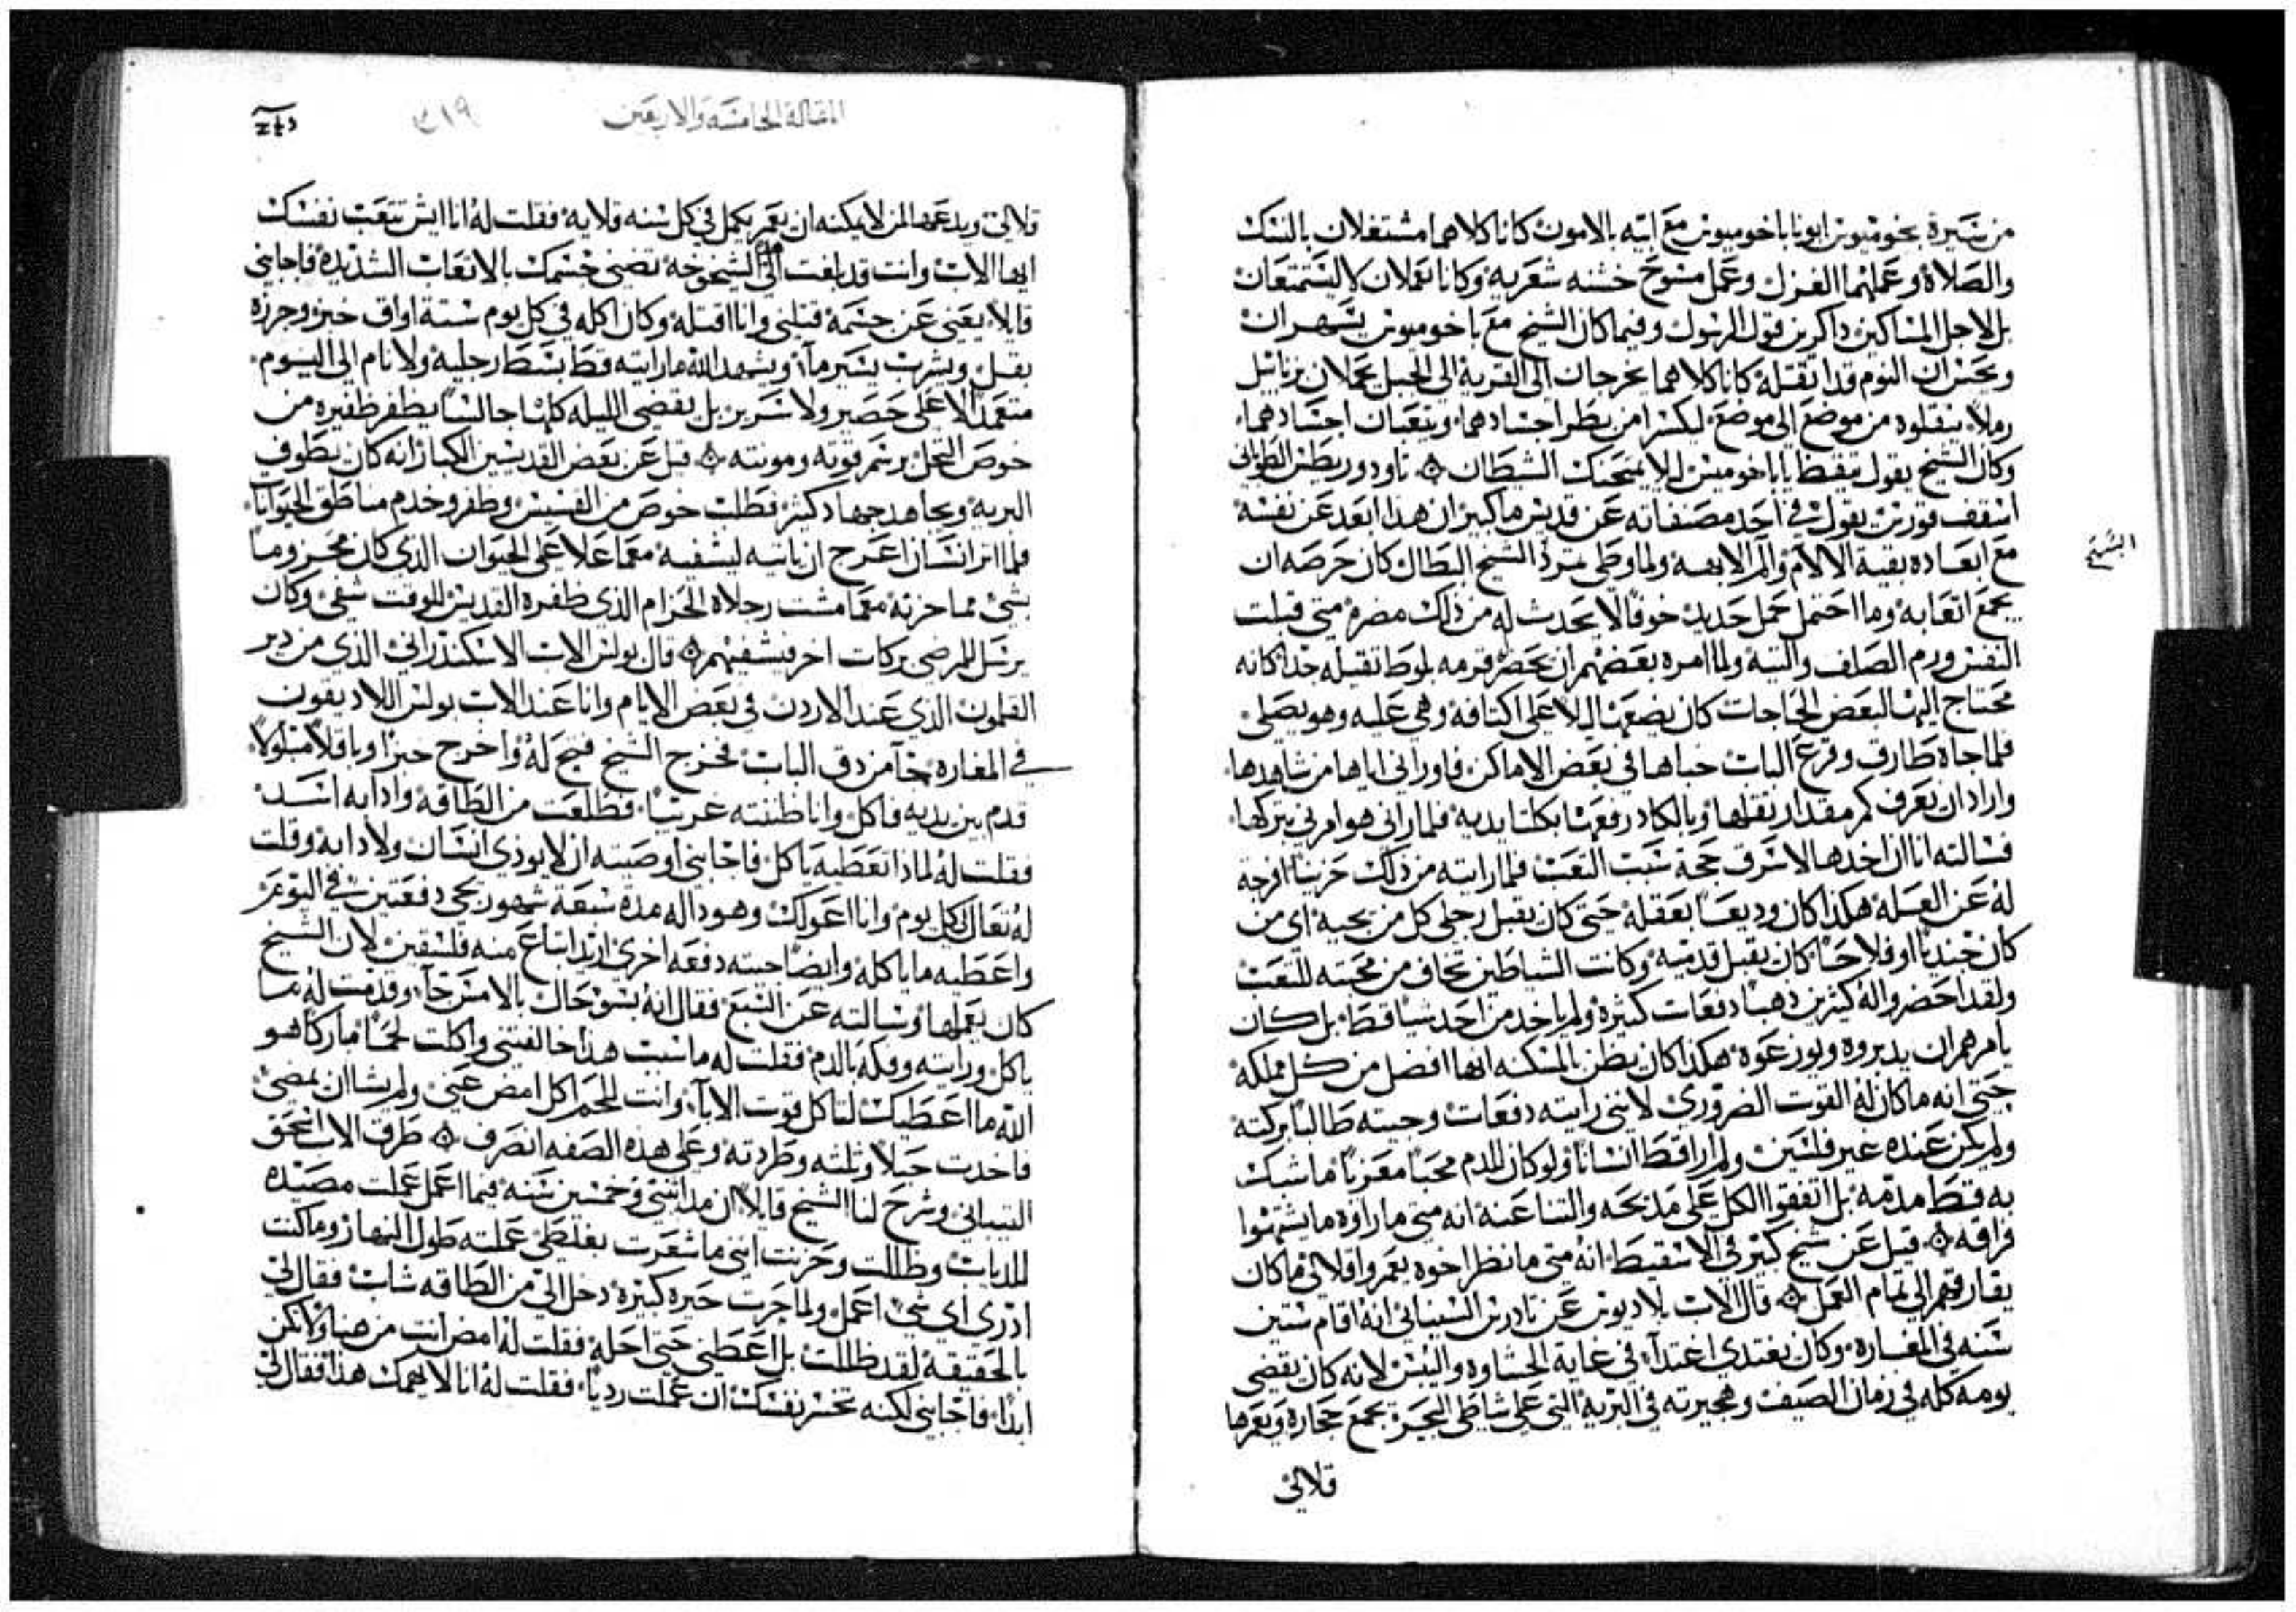 من سيرة بخوميوس ابونا باخوميوس مع ابيه بالامون كانا كلاهما مشتغلان بالنسك
والصلاة وعملهما الغزل وعمل مسوح خشنه شعريه وكانا يعملان لا ليستمتعان
بل لاجل المساكين داكرين قول الرسول وفيما كان الشيخ مع باخوميوس يسهران
ويحسان النوم قد اتقله كانا كلاهما يخرجان الى القريه الى الجبل يحملان بزنابيل
رملا ينقلوه من موضع الى موضع ليكسرا من بطر اجسادهما ويتعبان اجسادهما
وكان الشيخ يقول تيقظ يا باخوميس ليلا يمتحنك الشيطان تاودوريطس
اسقف قورس يقول في احد مصنفاته عن قديس ما كبير ان هذا ابعد عن نفسه
مع ابعاده بقية الالام والم الابهه ولما وطى تمرد الشيخ البطال كان حرصه ان
الشيخ
يجمع اتعابه وما احتمل حمل حديد خوفا لا يحدث له من ذلك مضره متى قبلت
النفس ورم الصلف والتيه ولما امره بعضهم ان يحضر قرمه بلوط تقيله جدا كانه
محتاج اليها لبعض الحاجات كان يضعها ليلا على اكتافه وهي عليه وهو يصلي
فلما جاه طارق وقرع الباب خباها في بعض الاماكن فاوراني اياها من شاهدها
واراد ان يعرف كم مقدار تقلها وبالكاد رفعها بكلتا يديه فلما راني هو امرني بتركها
فسالته انا ان اخدها لاسرق حجة سبب التعب فلما رايته من ذلك حزينا
له عن العمله هكذا كان وديعا بعقله حتى كان يقبل رجلي كل من يجيه اي من
كان جنديا او فلاحا كان يقبل قدميه وكانت الشياطين تخاف من محبته للتعب
ولقد احضروا له كثيرين ذهبا دفعات كثيره ولم ياخد من احد شيا قط بل كان
يامرهم ان يدبروه ويوزعوه هكذا كان يظن بالمسكنه انها افضل من كل مملكه
حتى انه ما كان له القوت الضروري لانني رايته دفعات وجيته طالبا بركته
ولم يكن عنده غير فلسين ولم ار قط انسانا ولو كان للدم محبا معزيا ماشك
به قط مدمه بل اتفقوا الكل على مديحه والتنا عنه انه متى ما راوه ما يشتهوا
فراقه قيل عن شيخ كبير في الاسقيط انه متى ما نظر اخوه يعمروا قلالي ما كان
يفارقهم الى تمام العمل قال الاب بلاديوس عن تادرس السيناني انه اقام ستين
سنه في المغاره وكان يغتدي اغتدآ في غاية الجشاوه واليبس لانه كان يقضي
يومه كله في زمان الصيف وهجيرته في البريه التي على شاطي البحر يجمع حجاره ويعمرها
قلالي
المقاله الخامسه والاربعين
٣١٩
قلالي ويدعها لمن لا يمكنه ان يعمر يكمل في كل سنه قلايه فقلت له انا ايش تتعب نفسك
ايها الاب وانت قد بلغت الى الشيخوخه تضني جسمك بالاتعاب الشديده فاجابني
قايلا يعني عن جسمه قتلني وانا اقتله وكان اكله في كل يوم ستة اواق خبز وجرزه
بقل ويشرب يسير مآ ويشهد الله ما رايته قط بسط رجليه ولا نام الى اليوم
متعمدا لا على حصير ولا سرير بل يقضي الليله كلها جالسا يظفر ظفيره من
خوص النخل برسم قوته ومونته قيل عن بعض القديسين الكبار انه كان يطوف
البريه ويجاهد جهاد كثير فطلب خوص من القسيس وظفر وخدم مناطق الحيوانات
فلما اتر انسان اعرج ان ياتيه ليشفيه معما علا على الحيوان الذي كان محزوما
بشي مما حزته معما مشت رجلاه الحزام الذي ظفره القديس للوقت شفي وكان
يرسل للمرضى بركات اخر فيشفيهم قال بولس الاب الاسكندراني الذي من دير
القلمون الذي عند الاردن في بعض الايام وانا عند الاب بولس اللاديقون
في المغاره جآ من دق الباب فخرج الشيخ فتح له واخرج خبزا وباقلا مبلولا
قدم بين يديه فاكل وانا ظننته غريبا فطلعت من الطاقه وادا به اسد
فقلت له لماذا تعطيه ياكل فاجابني اوصيته ان لا يوذي انسان ولا دابه وقلت
له تعال كل يوم وانا اعولك وهودا له مدة سبعة شهور يجي دفعتين في اليوم
واعطيه ما ياكله وايضا جيته دفعه اخرى اريد ابتاع منه فلسقين لان الشيخ
كان يعملها وسالته عن السبع فقال انه بسو حال بالامس جآ وقدمت له ما
ياكل ورايته وفكه بالدم فقلت له ما سبب هذا خالفتني واكلت لحما مبارك هو
الله ما اعطيك لتاكل قوت الابآ وانت للحم اكل امض عني ولم يشا ان يمضي
فاخدت حبلا وتلته وطردته وعلى هذه الصفه انصرف طرق الاب اسحق
التيباني وشرح لنا الشيخ قايلا ان مدا تنني وخمسين سنه فيما اعمل عملت مصيده
للدبات وظللت وحزنت انني ما شعرت بغلطي عملته طول النهار وما كنت
ادري اي شي اعمل ولما جرت حيره كبيره دخل الي من الطاقه شاب فقال لي
بالحقيقه لقد ظللت بل اعطني حتى احله فقلت له امض انت من هنا ولا تكن
ابدا فاجابني لكنه تخسر نفسك ان عملت رديا فقلت له انا لا يهمك هذا فقال لي